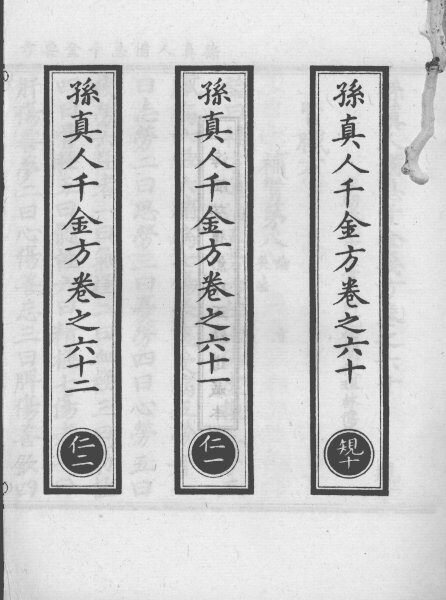 孫真人千金方卷之六十
規十
孫真人千金方卷之六十一
仁一
孫真人千金方卷之六十二
仁二